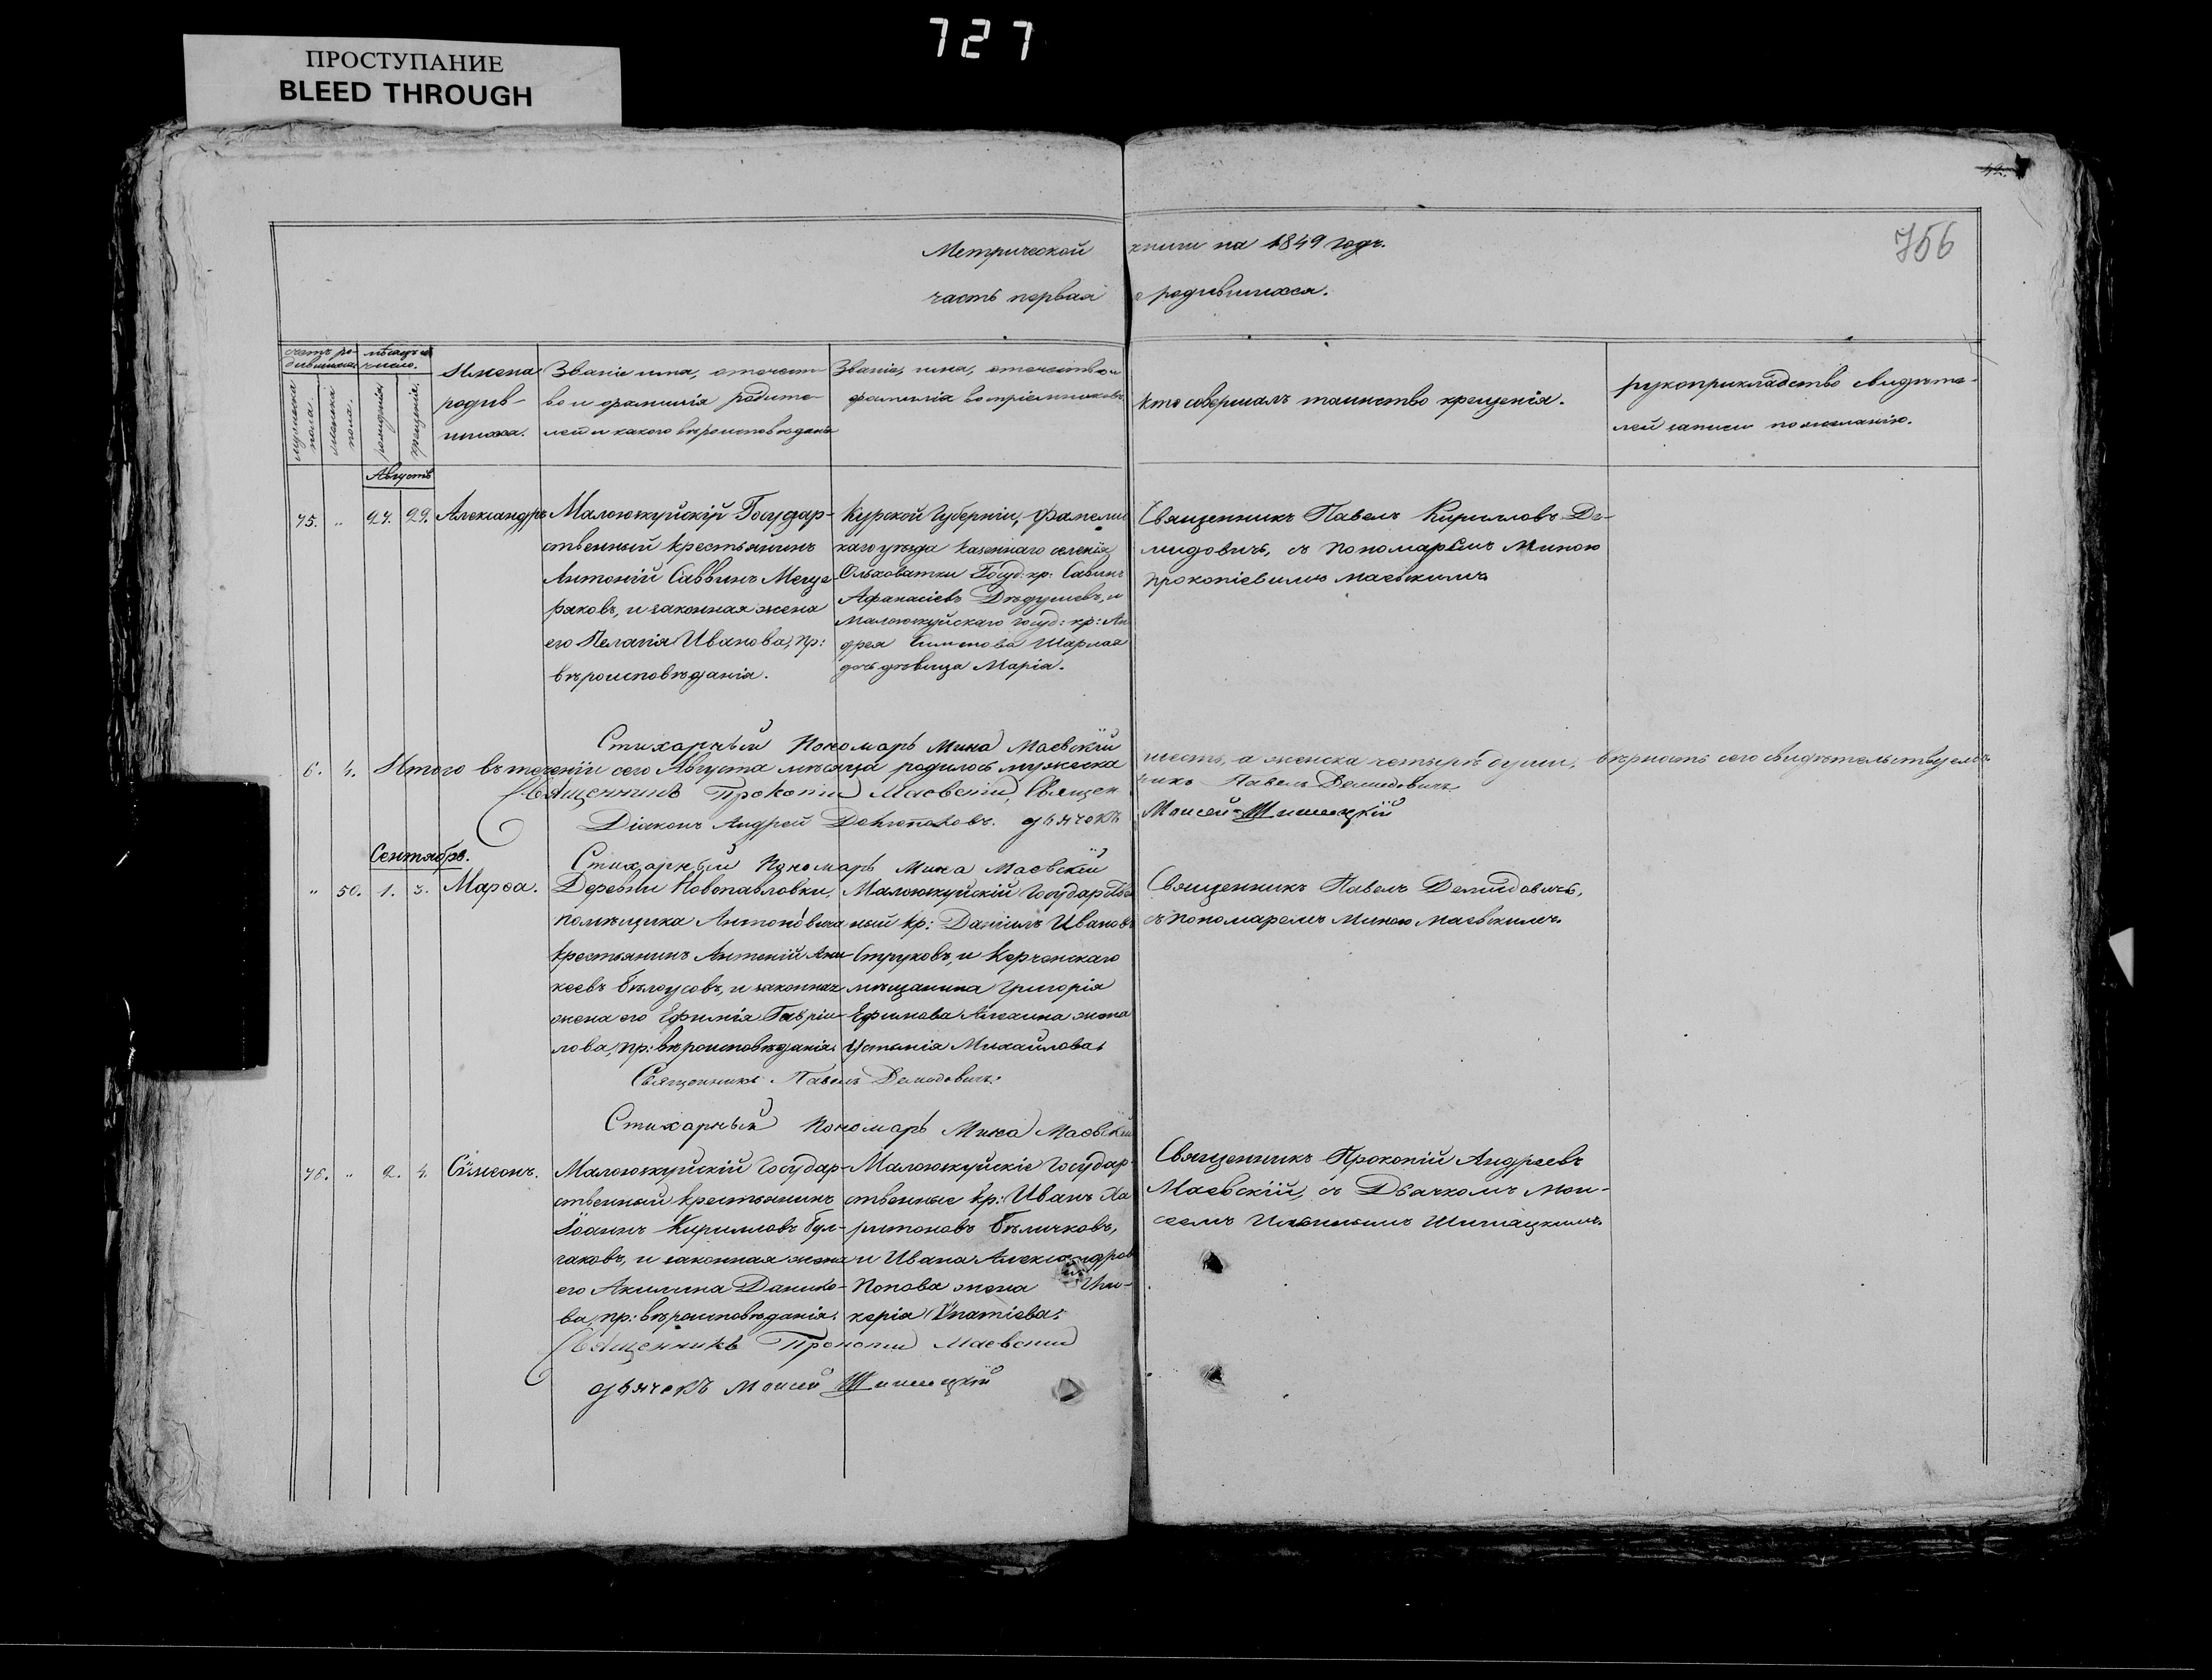 727
ПРОСТУПАНИЕ
BLEED THROUGH
756
Метрической книги на 1849 годъ.
часть первая о родившихся.
счетъ родившихся
мужеска пола.
женска пола.
мѣсяцъ и число.
рожденія.
крещенія.
Имена
родив-
шихся.
Званіе имя, отечест-
во и фамилія родите-
лей и какого вѣроисповѣданія
Званіе, имя, отечество и
фамилія воспріемниковъ
Кто совершалъ таинство крещенія.
рукоприкладство свидѣте-
лей записи по желанію.
Августъ
75. " 27. 29. Александръ
Малоюжуйскій Государ-
ственный крестьянинъ
Антоній Саввинъ Меще-
ряковъ, и законная жена
его Пелагія Иванова, пр:
вѣроисповѣданія.
Курской Губерніи,
каго уѣзда казеннаго селенія
Ольховатки Госуд: кр: Савинъ
Афанасіевъ Дѣдушевъ, и
Малоюжуйскаго госуд: кр: Ан
дрея
дочь дѣвица Марія.
Священникъ Павелъ Кирилловъ Де-
мидовичъ, съ пономаремъ Миною
Прокопіевымъ Маевскимъ
Стихарный Пономарь Мина Маевскій
6. 4. Итого въ теченіи сего Августа мѣсяца родилось мужеска шесть, а женска четыре души, вѣрность сего свидѣтельствуемъ
Священникъ Прокопій Маевскій, Священ
никъ Павелъ Демидовичъ
Діаконъ Андрей дьячокъ Моисей Шишацкій
Стихарный Пономарь Мина Маевскій
Сентябрь.
" 50. 1. 3. Марѳа.
Деревни Новопавловки,
помѣщика Антоновича
крестьянинъ Антоній Ани-
кеевъ Бѣлоусовъ, и законная
жена его Ефимія Гавріи-
лова, пр: вѣроисповѣданія.
Малоюжуйскій Государствен
ный кр: Даніилъ Ивановъ
Струковъ, и Керченскаго
мѣщанина Григорія
Ефимова Алехина жена
Устинія Михайлова.
Священникъ Павелъ Демидовичъ,
съ пономаремъ Миною Маевскимъ
Священникъ Павелъ Демидовичъ.
Стихарный Пономарь Мина Маевскій
76. " 2. 4. Сѵмеонъ.
Малоюжуйскій Государ-
ственный крестьянинъ
Іоаннъ Кирилловъ Бул-
гаковъ, и законная жена
его Акилина Данило-
ва, пр: вѣроисповѣданія.
Малоюжуйскіе Государ-
ственные кр: Иванъ Ха
ритоновъ Бѣличковъ,
и Ивана Александров
Попова жена Гли-
керія Игнатіева.
Священникъ Прокопій Андреевъ
Маевскій, съ Дьячкомъ Мои-
сеемъ Шишацкимъ.
Священникъ Прокопій Маевскій
дьячокъ Моисей Шишацкій